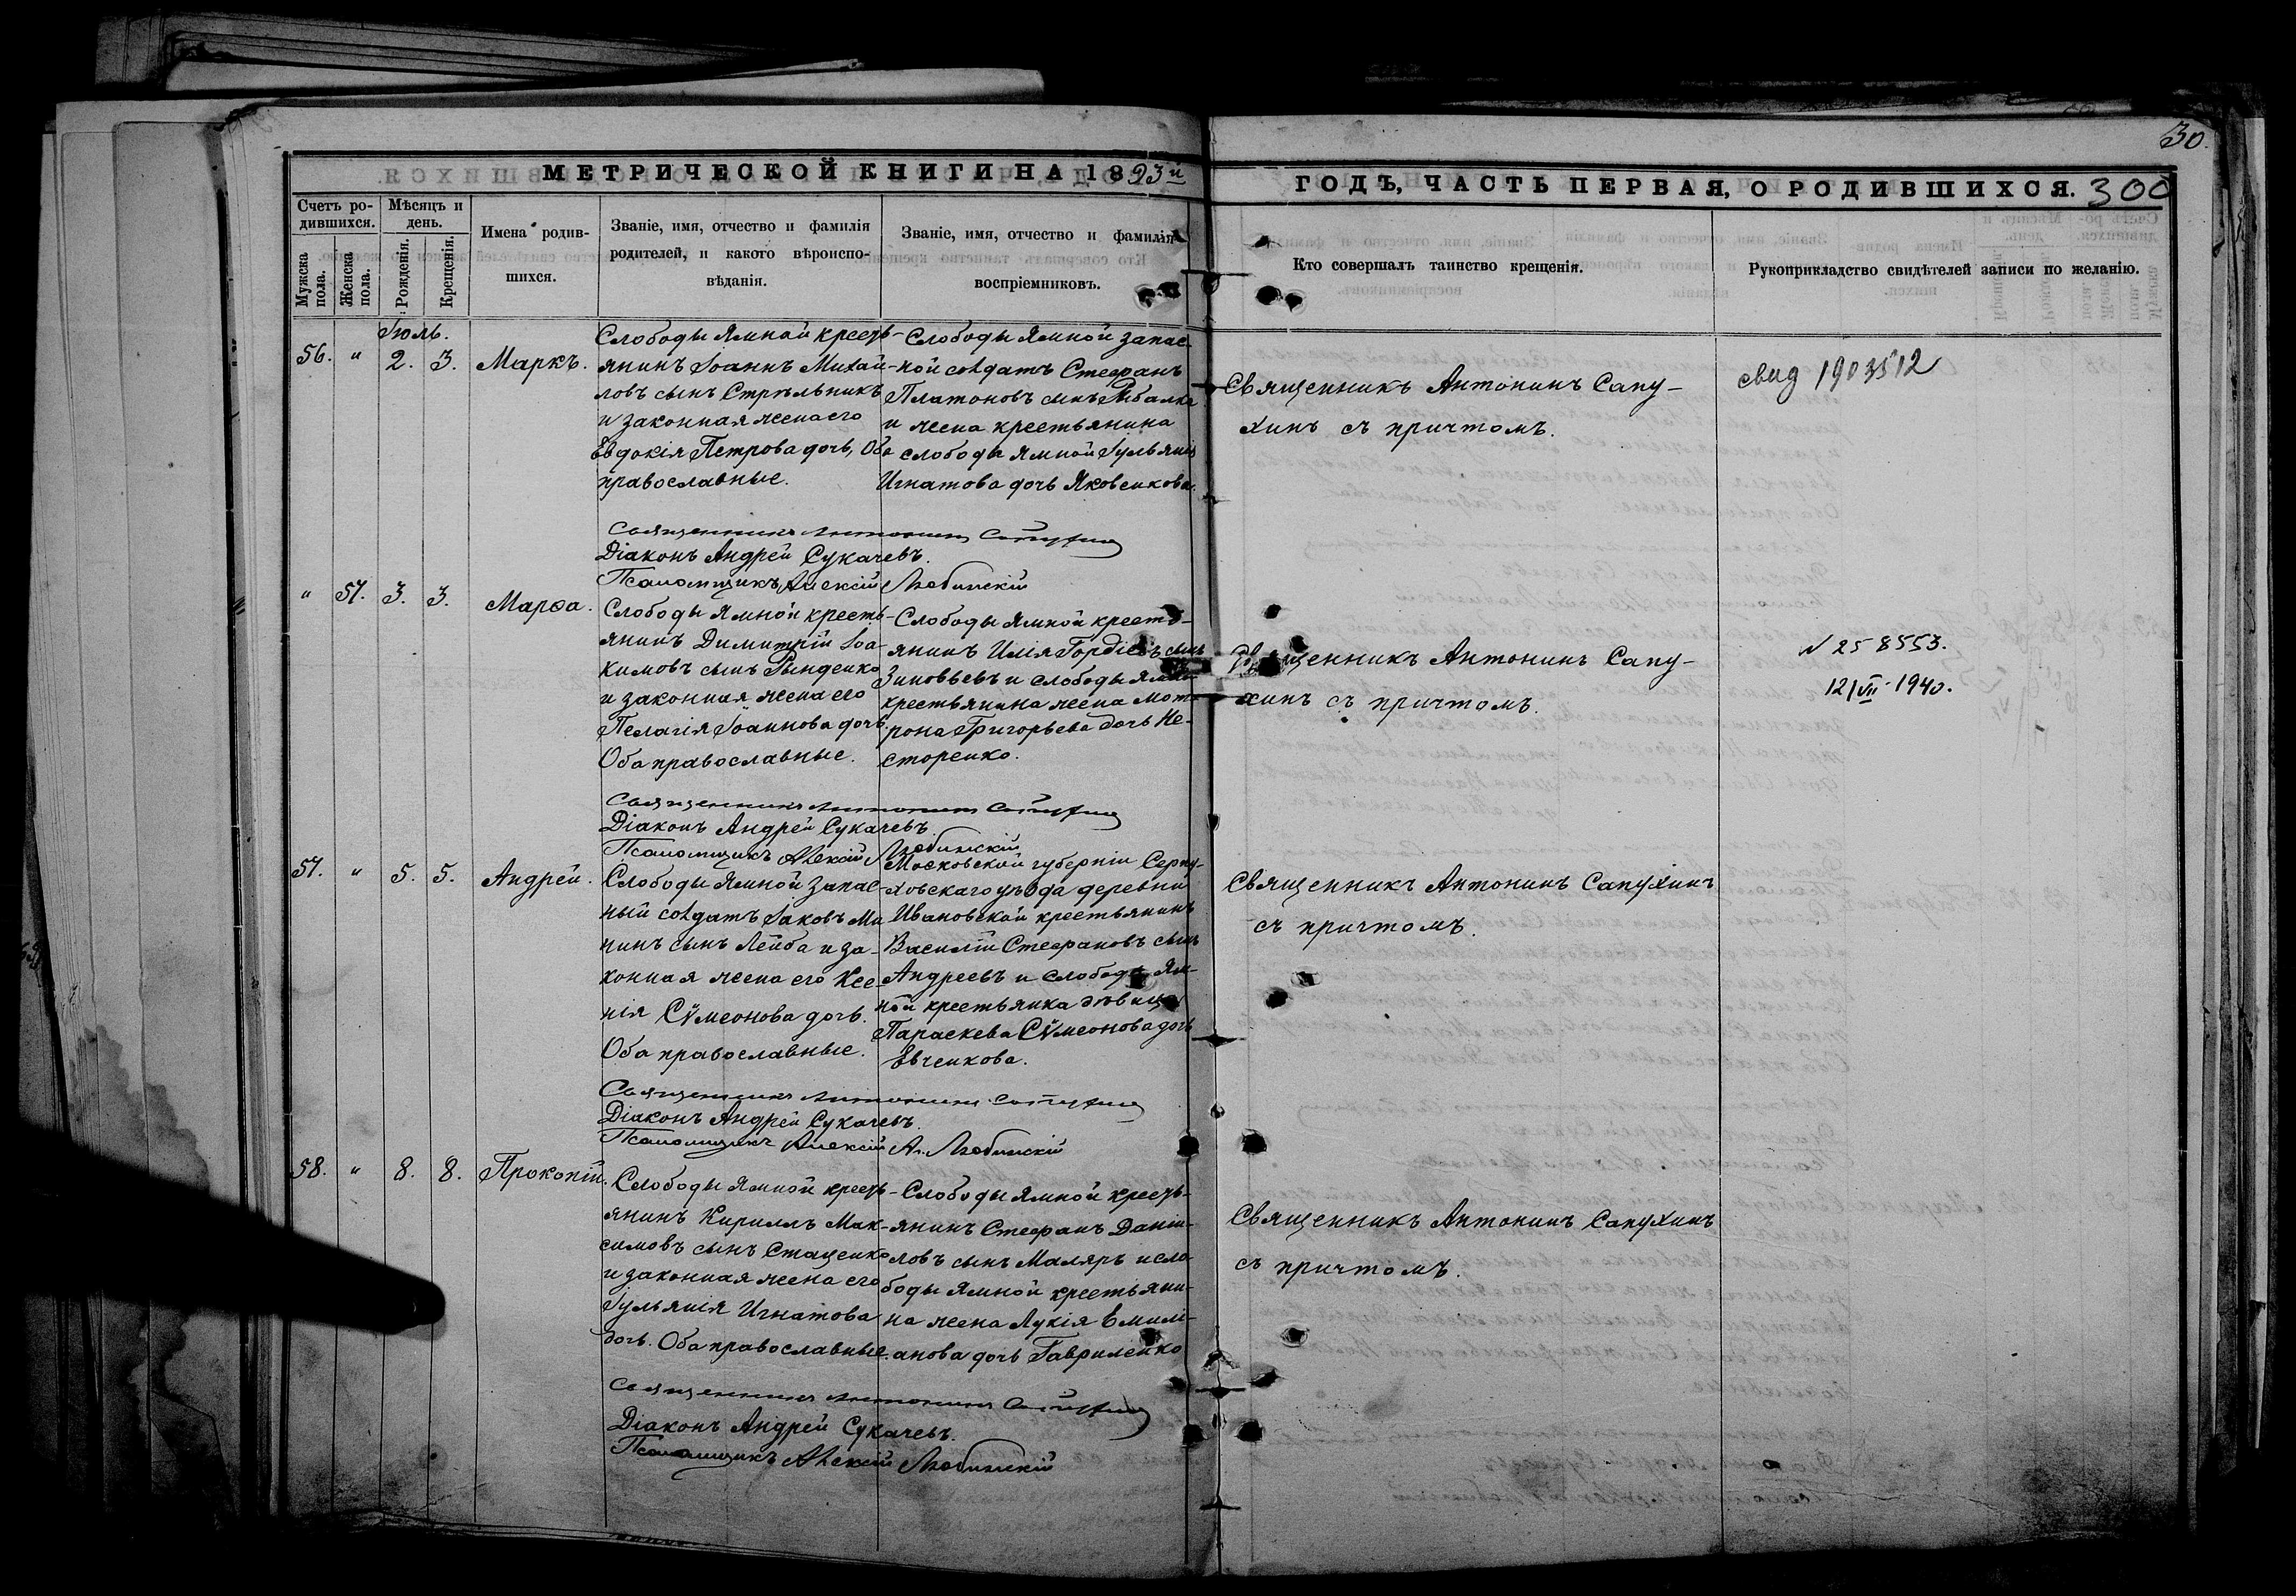 30.
МЕТРИЧЕСКОЙ КНИГИ НА 1893й
ГОДЪ, ЧАСТЬ ПЕРВАЯ, О РОДИВШИХСЯ. 300
Счетъ родившихся.
Мужска пола.
Женска пола.
Мѣсяцъ и день.
Рожденія.
Крещенія.
Имена родившихся.
Званіе, имя, отчество и фамилія
родителей, и какого вѣроиспо-
вѣданія.
Званіе, имя, отчество и фамилія
воспріемниковъ.
Кто совершалъ таинство крещенія.
Рукоприкладство свидѣтелей записи по желанію.
Іюль.
56. " 2. 3. Маркъ.
Слободы Ямной кресть-
янинъ Іоаннъ Михай-
ловъ сынъ Стрѣльникъ
и законная жена его
Евдокія Петрова дочь, Оба
православные.
Слободы Ямной запас-
ной солдатъ Стефанъ
Платоновъ сынъ Рыбалка
и жена крестьянина
слободы Ямной Іульянія
Игнатова дочь Яковенкова.
Священникъ Антонинъ Сапу-
хинъ съ причтомъ.
свид 1903512
Священникъ Антонинъ Сапухинъ
Діаконъ Андрей Сукачевъ.
Псаломщикъ Алексій Любинскій
" 57. 3. 3. Марѳа.
Слободы Ямной кресть-
янинъ Димитрій Іоа-
кимовъ сынъ Гынденко
и законная жена его
Пелагія Іоаннова дочь.
Оба православные.
Слободы Ямной кресть-
янинъ Илія Гордіевъ сынъ
Зиновьевъ и слободы Ямной
крестьянина жена Мот-
рона Григорьева дочь Не-
сторенко.
Священникъ Антонинъ Сапу-
хинъ съ причтомъ.
N 258553.
12/VII 1940.
Священникъ Антонинъ Сапухинъ
Діаконъ Андрей Сукачевъ.
Псаломщикъ Алексій Любинскій
57. " 5. 5. Андрей.
Слободы Ямной запас-
ный солдатъ Іаковъ Ми
нинъ сынъ Лейба и за-
конная жена его Ксе-
нія Сѵмеонова дочь.
Оба православные.
Московской губерніи Серпу-
ховскаго уѣзда деревни
Ивановской крестьянинъ
Василій Стефановъ сынъ
Андреевъ и слободы Ям-
ной крестьянка дѣвица
Параскева Сѵмеонова дочь
Евченкова.
Священникъ Антонинъ Сапухинъ
съ причтомъ.
Священникъ Антонинъ Сапухинъ
Діаконъ Андрей Сукачевъ.
Псаломщикъ Алексій Ал. Любинскій
58. " 8. 8. Прокопій.
Слободы Ямной кресть-
янинъ Кириллъ Мак-
симовъ сынъ Стаценко
и законная жена его
Іульянія Игнатова
дочь. Оба православные.
Слободы Ямной кресть-
янинъ Стефанъ Даніи-
ловъ сынъ Маляръ и сло-
боды Ямной крестьяни-
на жена Лукія Емилі-
анова дочь Гавриленко
Священникъ Антонинъ Сапухинъ
съ причтомъ.
Священникъ Антонинъ Сапухинъ
Діаконъ Андрей Сукачевъ.
Псаломщикъ Алексій Любинскій